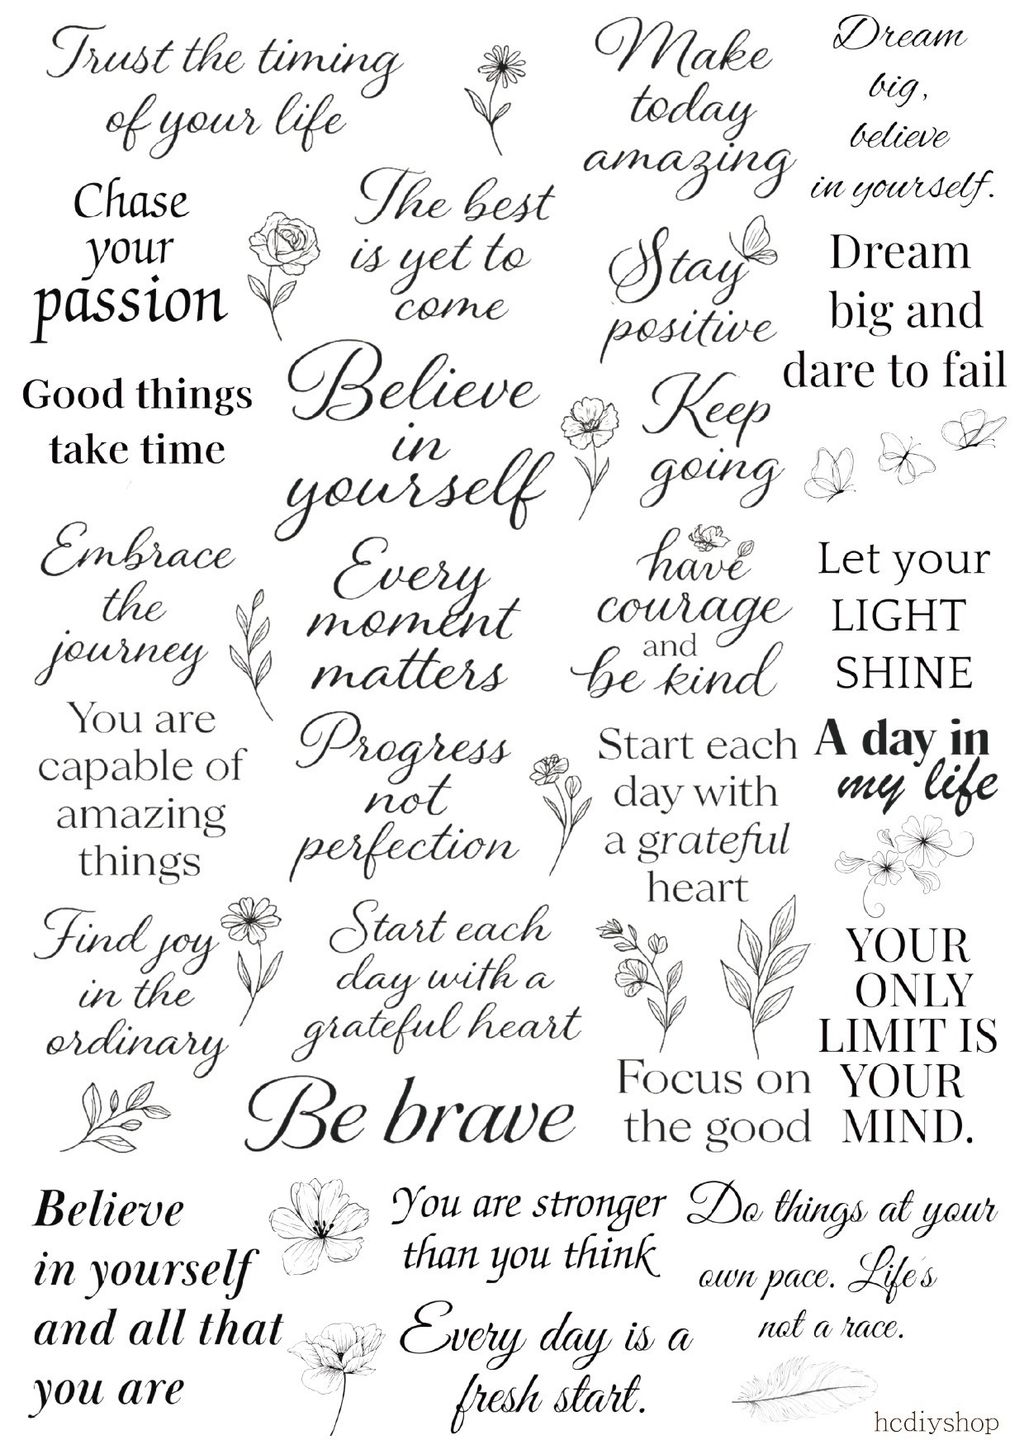 Trust the timing
of your life
Make
today
amazing
Dream
big,
believe
in yourself.
Chase
your
passion
The best
is yet to
come
Stay
positive
Dream
big and
dare to fail
Good things
take time
Believe
in
yourself
Keep
going
Embrace
the
journey
Every
moment
matters
have
courage
and
be kind
Let your
LIGHT
SHINE
You are
capable of
amazing
things
Progress
not
perfection
Start each
day with
a grateful
heart
A day in
my life
Find joy
in the
ordinary
Start each
day with a
grateful heart
YOUR
ONLY
LIMIT IS
YOUR
MIND.
Be brave
Focus on
the good
Believe
in yourself
and all that
you are
You are stronger
than you think
Do things at your
own pace. Life's
not a race.
Every day is a
fresh start.
hcdiyshop